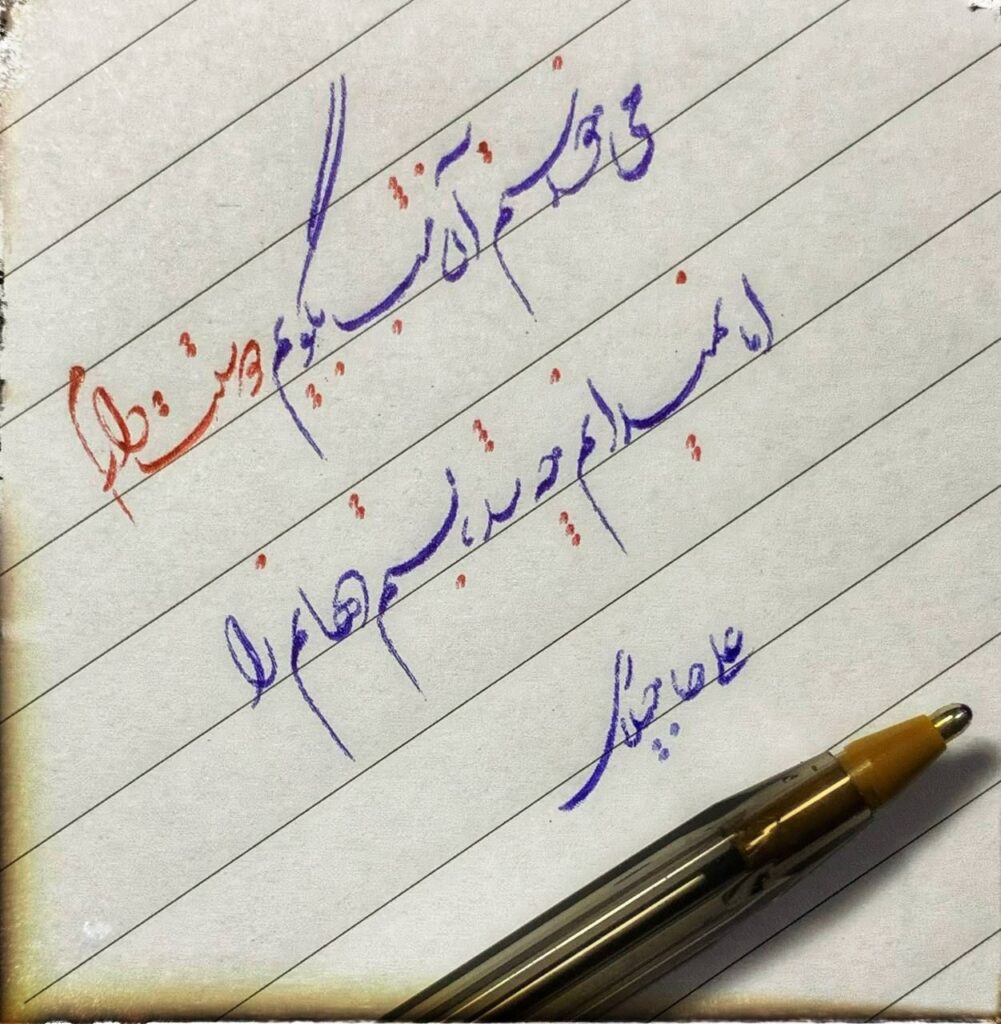 می خواستم آن شب بگویم دوستت دارم
اما نمیدانم چه شد، بستم دهانم را
علی